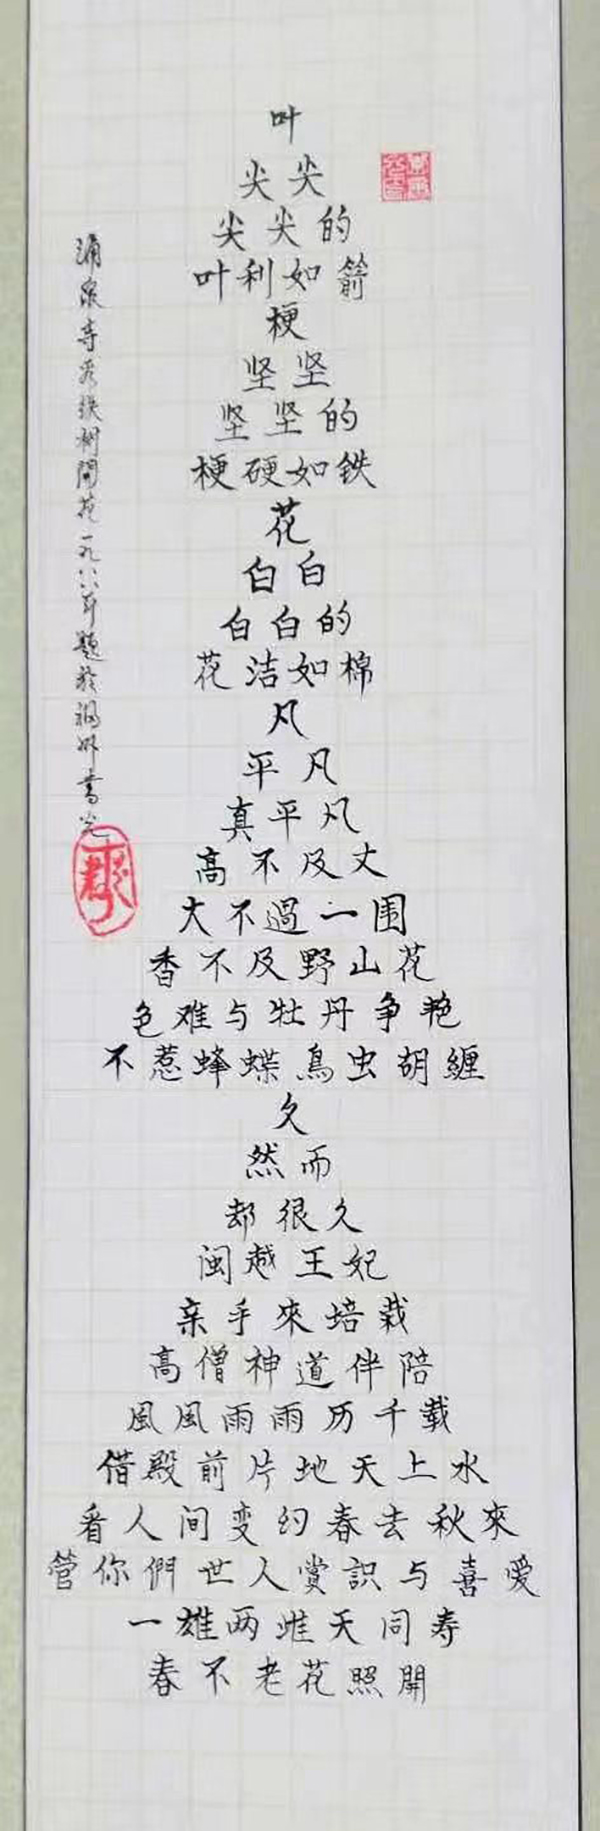 叶
尖尖
尖尖的
叶利如箭
梗
坚坚
坚坚的
梗硬如鉄
花
白白
白白的
花洁如棉
凡
平凡
真平凡
高不及丈
大不過一围
香不及野山花
色难与牡丹争艳
不惹蜂蝶鳥虫胡缠
久
然而
却很久
闽越王妃
亲手來培栽
高僧神道伴陪
風風雨雨历千载
借殿前片地天上水
看人间变幻春去秋來
管你們世人赏識与喜爱
一雄两雌天同寿
春不老花照開
涌泉寺秀鉄树開花一九八八年題於福州書光